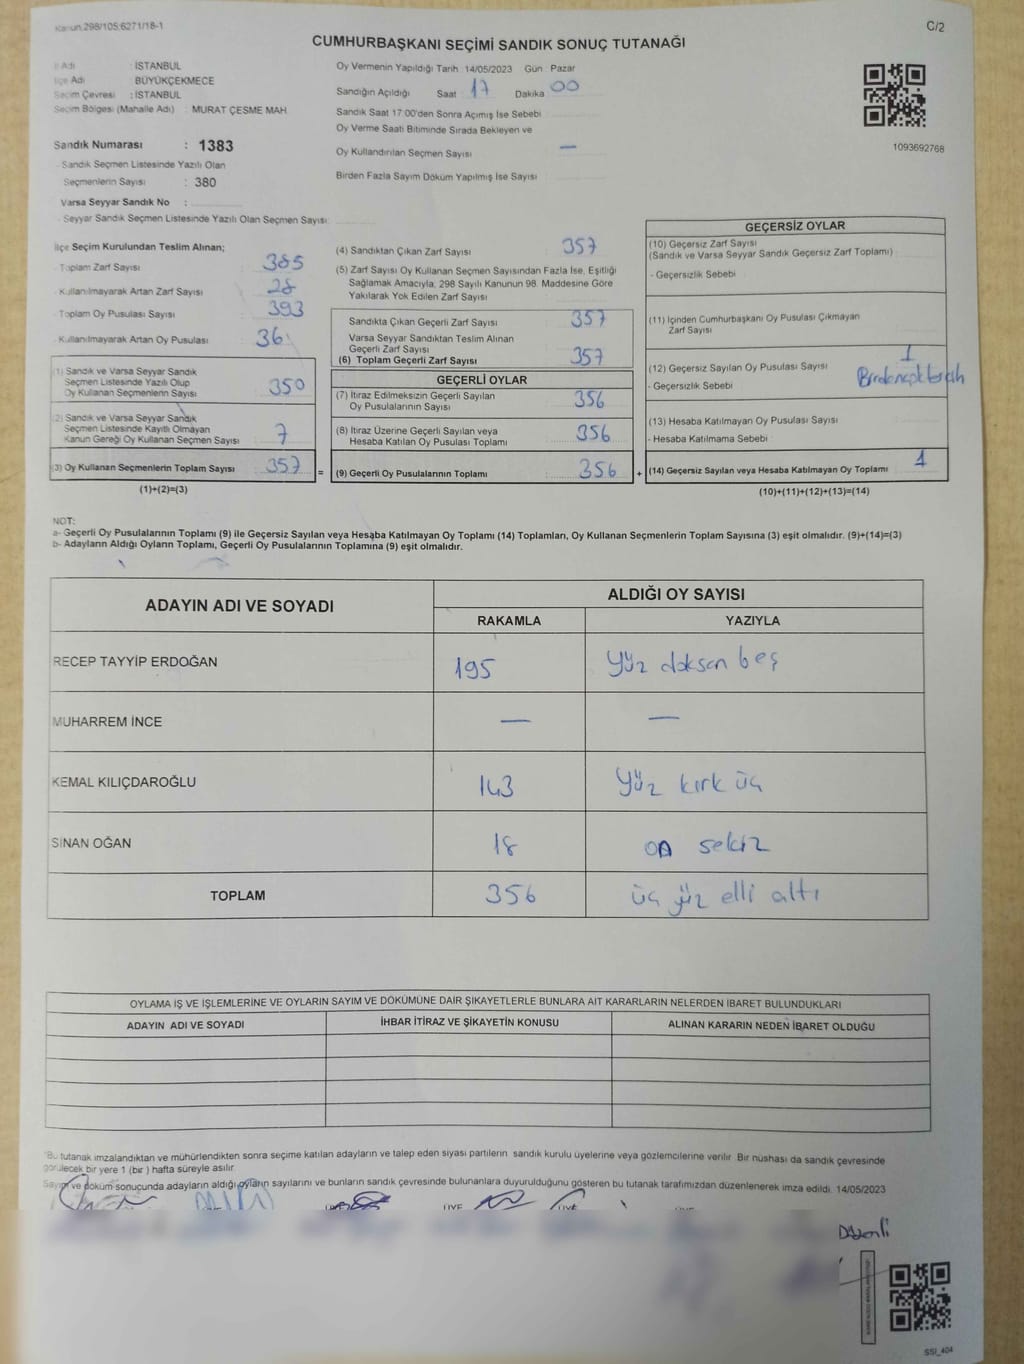 Kanun.298/105:6271/18-1
C/2
CUMHURBAŞKANI SEÇİMİ SANDIK SONUÇ TUTANAĞI
İl Adı : İSTANBUL
İlçe Adı : BÜYÜKÇEKMECE
Seçim Çevresi : İSTANBUL
Seçim Bölgesi (Mahalle Adı) : MURAT ÇESME MAH
Sandık Numarası : 1383
- Sandık Seçmen Listesinde Yazılı Olan
Seçmenlerin Sayısı : 380
Varsa Seyyar Sandık No :
- Seyyar Sandık Seçmen Listesinde Yazılı Olan Seçmen Sayısı:
Oy Vermenin Yapıldığı Tarih 14/05/2023 Gün Pazar
Sandığın Açıldığı Saat 17 Dakika 00
Sandık Saat 17:00'den Sonra Açılmış İse Sebebi
Oy Verme Saati Bitiminde Sırada Bekleyen ve
Oy Kullandırılan Seçmen Sayısı —
Birden Fazla Sayım Döküm Yapılmış İse Sayısı
1093692768
İlçe Seçim Kurulundan Teslim Alınan;
- Toplam Zarf Sayısı 385
- Kullanılmayarak Artan Zarf Sayısı 28
- Toplam Oy Pusulası Sayısı 393
- Kullanılmayarak Artan Oy Pusulası 36
(1) Sandık ve Varsa Seyyar Sandık
Seçmen Listesinde Yazılı Olup
Oy Kullanan Seçmenlerin Sayısı 350
(2) Sandık ve Varsa Seyyar Sandık
Seçmen Listesinde Kayıtlı Olmayan
Kanun Gereği Oy Kullanan Seçmen Sayısı 7
(3) Oy Kullanan Seçmenlerin Toplam Sayısı 357 =
(1)+(2)=(3)
(4) Sandıktan Çıkan Zarf Sayısı 357
(5) Zarf Sayısı Oy Kullanan Seçmen Sayısından Fazla İse, Eşitliği
Sağlamak Amacıyla, 298 Sayılı Kanunun 98. Maddesine Göre
Yakılarak Yok Edilen Zarf Sayısı
Sandıkta Çıkan Geçerli Zarf Sayısı 357
Varsa Seyyar Sandıktan Teslim Alınan
Geçerli Zarf Sayısı
(6) Toplam Geçerli Zarf Sayısı 357
GEÇERLİ OYLAR
(7) İtiraz Edilmeksizin Geçerli Sayılan
Oy Pusulalarının Sayısı 356
(8) İtiraz Üzerine Geçerli Sayılan veya
Hesaba Katılan Oy Pusulası Toplamı 356
(9) Geçerli Oy Pusulalarının Toplamı 356 +
GEÇERSİZ OYLAR
(10) Geçersiz Zarf Sayısı
(Sandık ve Varsa Seyyar Sandık Geçersiz Zarf Toplamı)
- Geçersizlik Sebebi
(11) İçinden Cumhurbaşkanı Oy Pusulası Çıkmayan
Zarf Sayısı
(12) Geçersiz Sayılan Oy Pusulası Sayısı 1
- Geçersizlik Sebebi
(13) Hesaba Katılmayan Oy Pusulası Sayısı
- Hesaba Katılmama Sebebi
(14) Geçersiz Sayılan veya Hesaba Katılmayan Oy Toplamı 1
(10)+(11)+(12)+(13)=(14)
NOT:
a- Geçerli Oy Pusulalarının Toplamı (9) ile Geçersiz Sayılan veya Hesaba Katılmayan Oy Toplamı (14) Toplamları, Oy Kullanan Seçmenlerin Toplam Sayısına (3) eşit olmalıdır. (9)+(14)=(3)
b- Adayların Aldığı Oyların Toplamı, Geçerli Oy Pusulalarının Toplamına (9) eşit olmalıdır.
ADAYIN ADI VE SOYADI
ALDIĞI OY SAYISI
RAKAMLA YAZIYLA
RECEP TAYYİP ERDOĞAN 195 Yüz doksan beş
MUHARREM İNCE — —
KEMAL KILIÇDAROĞLU 143 Yüz kırk üç
SİNAN OĞAN 18 on sekiz
TOPLAM 356 üç yüz elli altı
OYLAMA İŞ VE İŞLEMLERİNE VE OYLARIN SAYIM VE DÖKÜMÜNE DAİR ŞİKAYETLERLE BUNLARA AİT KARARLARIN NELERDEN İBARET BULUNDUKLARI
ADAYIN ADI VE SOYADI İHBAR İTİRAZ VE ŞİKAYETİN KONUSU ALINAN KARARIN NEDEN İBARET OLDUĞU
*Bu tutanak imzalandıktan ve mühürlendikten sonra seçime katılan adayların ve talep eden siyasi partilerin sandık kurulu üyelerine veya gözlemcilerine verilir. Bir nüshası da sandık çevresinde
görülecek bir yere 1 (bir ) hafta süreyle asılır.
Sayım ve döküm sonucunda adayların aldığı oyların sayılarını ve bunların sandık çevresinde bulunanlara duyurulduğunu gösteren bu tutanak tarafımızdan düzenlenerek imza edildi. 14/05/2023
ÜYE
SSI_404